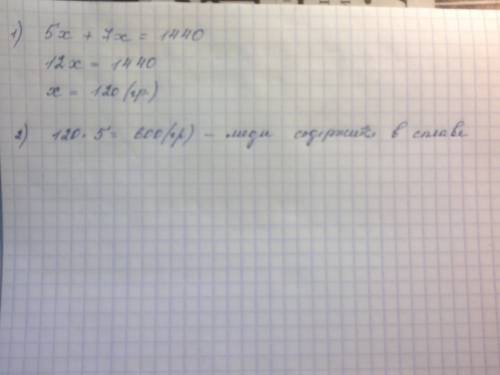 1) 5x + 7x = 1440
12x = 1440
x = 120 (гр.)
2) 120 · 5 = 600 (гр) – меди содержится в сплаве